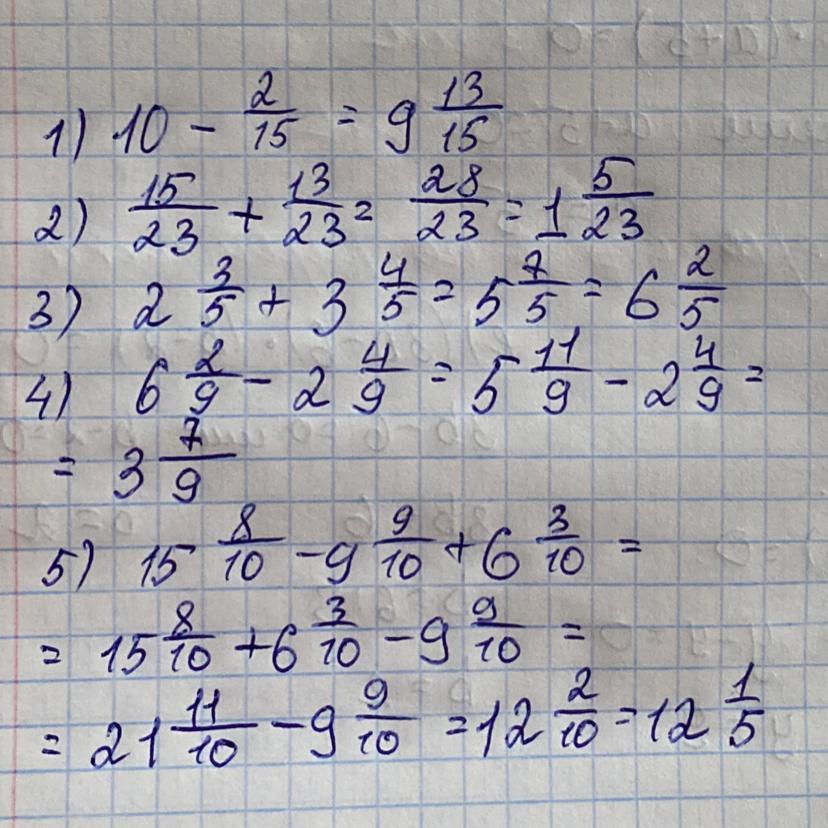 1) 10 - 2/15 = 9 13/15
2) 15/23 + 13/23 = 28/23 = 1 5/23
3) 2 3/5 + 3 4/5 = 5 7/5 = 6 2/5
4) 6 2/9 - 2 4/9 = 5 11/9 - 2 4/9 =
= 3 7/9
5) 15 8/10 - 9 9/10 + 6 3/10 =
= 15 8/10 + 6 3/10 - 9 9/10 =
= 21 11/10 - 9 9/10 = 12 2/10 = 12 1/5